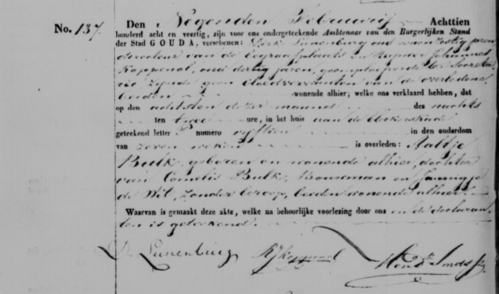 No. 137.
Den Negenden February Achttien
honderd acht en veertig, zijn voor ons ondergeteekende Ambtenaar van den Burgerlijken Stand
der Stad GOUDA, verschenen: Dirk Lunenburg oud
directeur van de begraafplaats en Reinier Johannes
Kappenal, oud dertig jaren,
zijnde geen bloedverwanten van de overledene,
beiden wonende alhier, welke ons verklaard hebben, dat
op den achtsten dezer maand des nachts
ten twee ure, in het huis aan de
geteekend letter numero vijftien in den ouderdom
van zeven weken is overleden: Aaltje
Bulk, geboren en wonende alhier, dochter
van Cornelis Bulk, Bouwman en Jannigje
de Wit, zonder beroep, beiden wonende alhier.
Waarvan is gemaakt deze akte, welke na behoorlijke voorlezing door ons en de declaran-
ten is geteekend.
D. Lunenburg